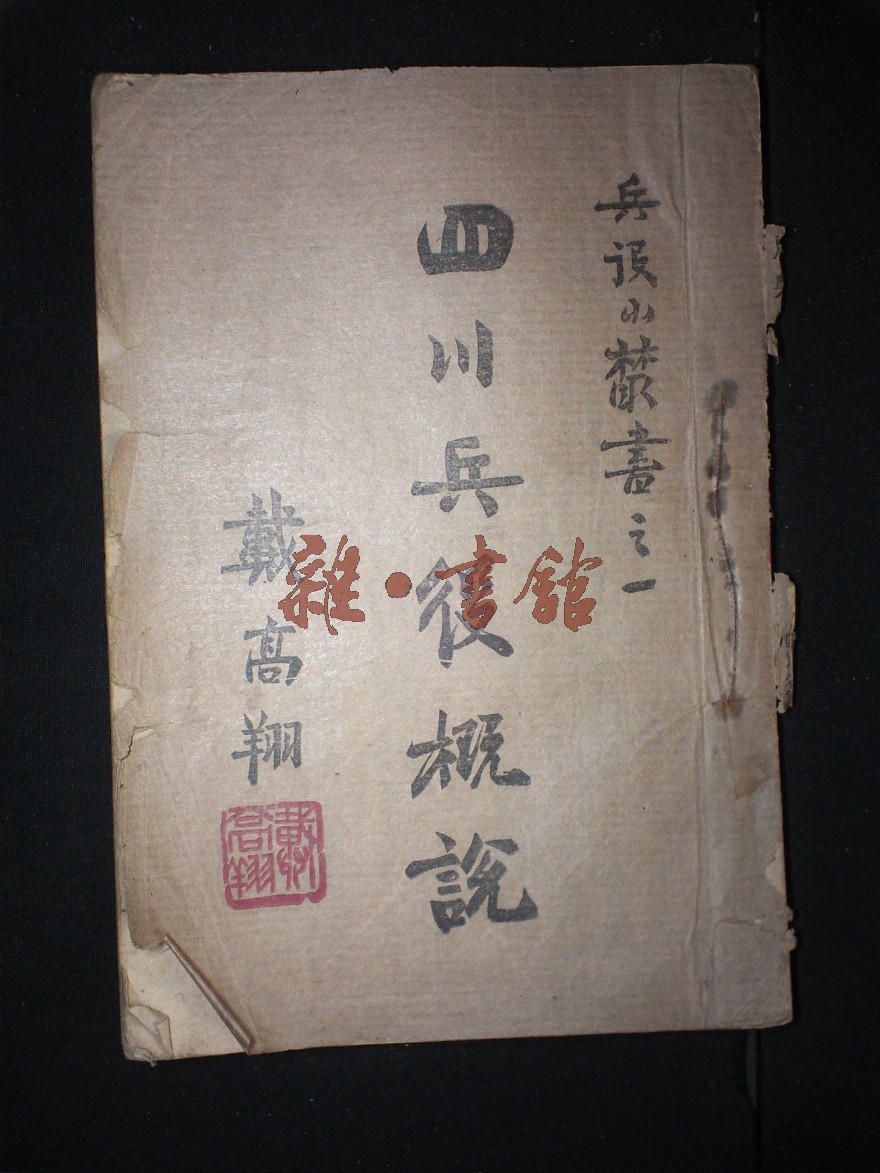 兵役小叢書之一
四川兵役概說
戴高翔
戴高翔
雜·書館